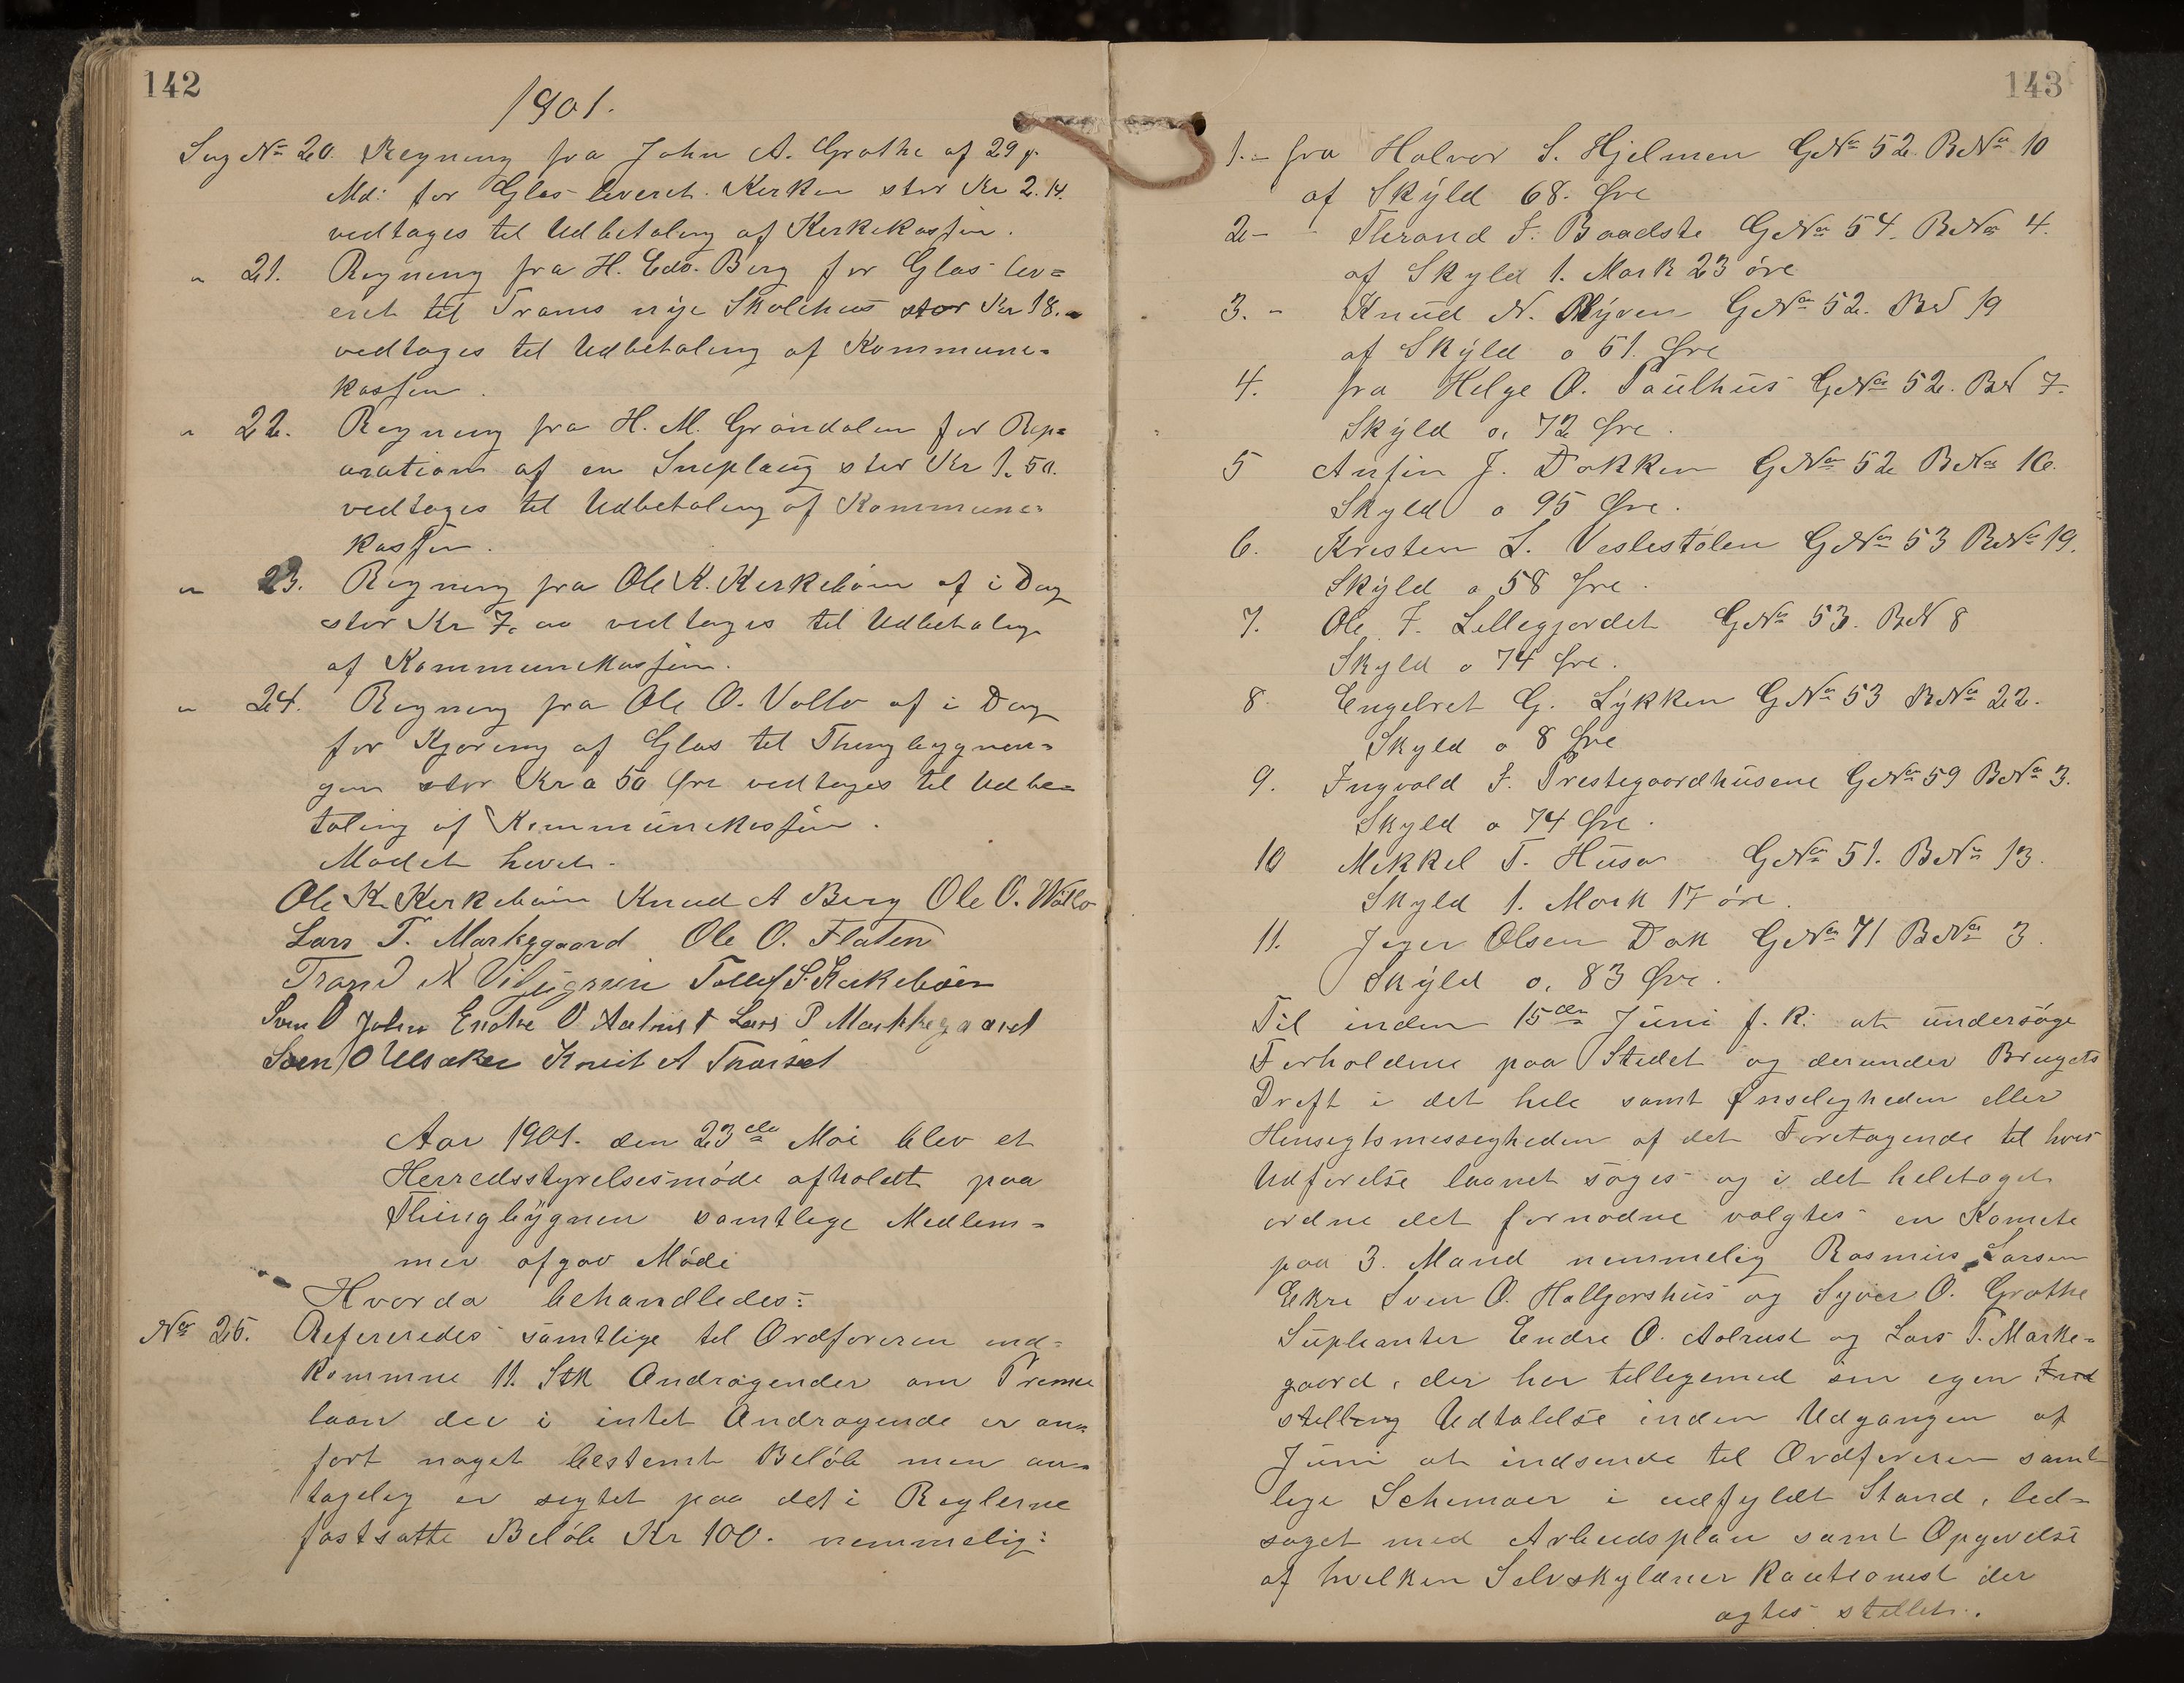 142
1901.
Sag No 20. Regning fra John A. Grøthe af 29 p.
Md: for Glas leveret Kirken stor Kr 2.14.
vedtages til Udbetaling af Kirkekassen.
" 21. Regning fra H. Edv. Berg for Glas lev=
eret til Trams nye Skolehus stor Kr 18.-
vedtages til Udbetaling af Kommune-
kassen.
" 22. Regning fra H. M. Grøndalen for Rep=
aration af en Sneplaug stor Kr 1.50.
vedtages til Udbetaling af Kommune-
kassen.
" 23. Regning fra Ole K. Kirkebøen af i Dag
stor Kr 7.00 vedtages til Udbetaling
af Kommunekassen.
" 24. Regning fra Ole O. Vøllo af i Dag
for Kjøring af Glas til Thingbygnin=
gen stor Kr 0 50 Øre vedtages til Udbe=
taling af Kommunekassen.
Mødet hævet.
Ole K. Kirkebøen Knud A Berg Ole O. Wøllo
Lars T. Markegaard Ole O. Flaten
Trand N Tollef S. Kirkebøen
Sven O Jolin Endre O Aalrust Lars P Markkegaard
Sven O Ulsaker Knut A Thorset
Aar 1901. den 23de Mai blev et
Herredsstyrelsesmøde afholdt paa
Thingbygnen samtlige Medlem-
mer afgav Møde
Hvorda behandledes:
No 25. Refereredes samtlige til Ordføreren ind=
komne 11. Stk Andragender om Premie
laan der i intet Andragende er an=
ført noget bestemt Beløb men an=
tagelig er sigtet paa det i Reglerne
fastsatte Beløb Kr 100. nemmelig:
143
1.- fra Halvor S. Hjelmen GNo 52 BNo 10
af Skyld 68. Øre
2- - Thrand I. Baadste GNo 54. BNo 4.
af Skyld 1. Mark 23 øre
3. - Knud N. Myren GNo 52. BN 19
af Skyld 0 51. Øre
4. fra Helge O. Paulhus GNo 52. BN 7.
Skyld 0, 72 Øre.
5 Anfin J. Dokken GNo 52 BNo 16.
Skyld 0 95 Øre.
6. Kristen L. Veslestølen GNo 53 BNo 19.
Skyld 0 58 Øre.
7. Ole F. Lillegjordet GNo 53. BN 8
Skyld 0 74 Øre.
8 Engebret G. Lykken GNo 53 BNo 22.
Skyld 0 8 Øre
9. Ingvold J. Prestegaardhusene GNo 59 BNo 3.
Skyld 0 74 Øre.
10 Mikkel T. Huso GNo 51. BNo 13.
Skyld 1. Mark 17 øre.
11. Olsen Dok GNo 71 BNo 3.
Skyld 0. 83 Øre.
Til inden 15den Juni f. k. at undersøge
Forholdene paa Stedet og derunder Brugets
Drift i det hele samt Ønseligheden eller
Hensigtsmessigheden af det Foretagende til hvis
Udførelse laanet søges og i det heletaget
ordne det fornødne valgtes en Komete
paa 3. Mand nemmelig Rasmus Larsen
Ekre Sven O. Hallgarshus og Syver O. Grøthe
Suplianter Endre O. Aalrust og Lars T. Marke-
gaard, der har tilligemed sin egen Ind
stilling Udtalelse inden Udgangen af
Juni at indsende til Ordføreren samt
lige Schemaer i udfyldt Stand, led-
saget med Arbeidsplan samt Opgivelse
af hvilken Selvskyldner Kautionist der
agtes stillet.